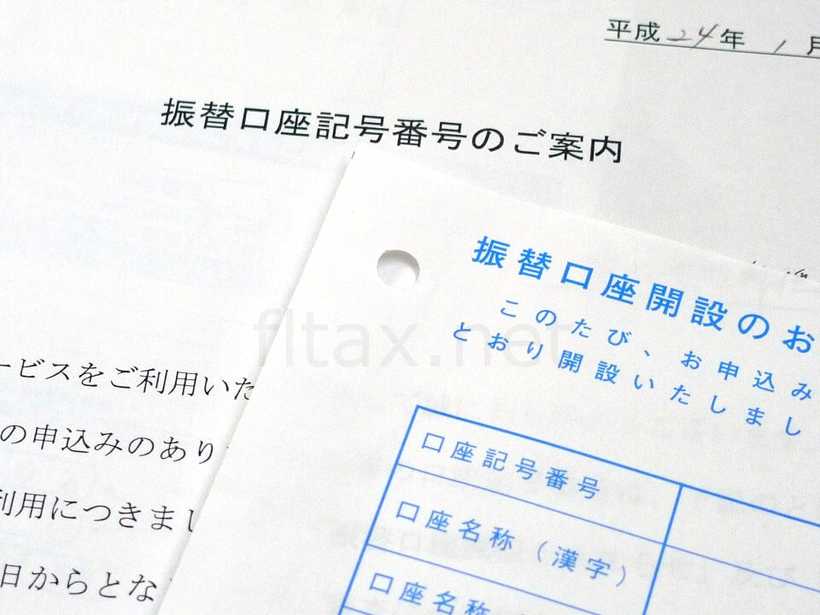 平成24年 1月
振替口座記号番号のご案内
ービスをご利用いた
の申込みのあり
利用につきまし
日からとな
振替口座開設のお
このたび、お申込み
とおり開設いたしまし
口座記号番号
口座名称(漢字)
口座名称
fltax.net